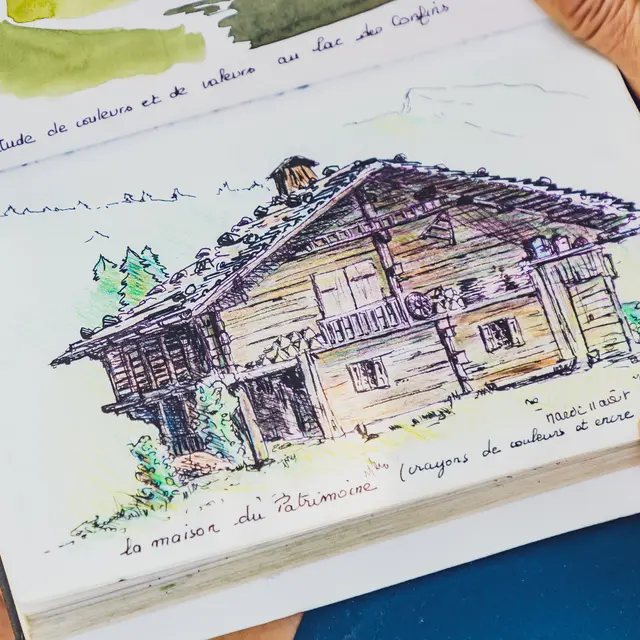 tude de couleurs et de valeurs au lac des Confins
la maison du Patrimoine (crayons de couleurs et encre
mardi 11 août